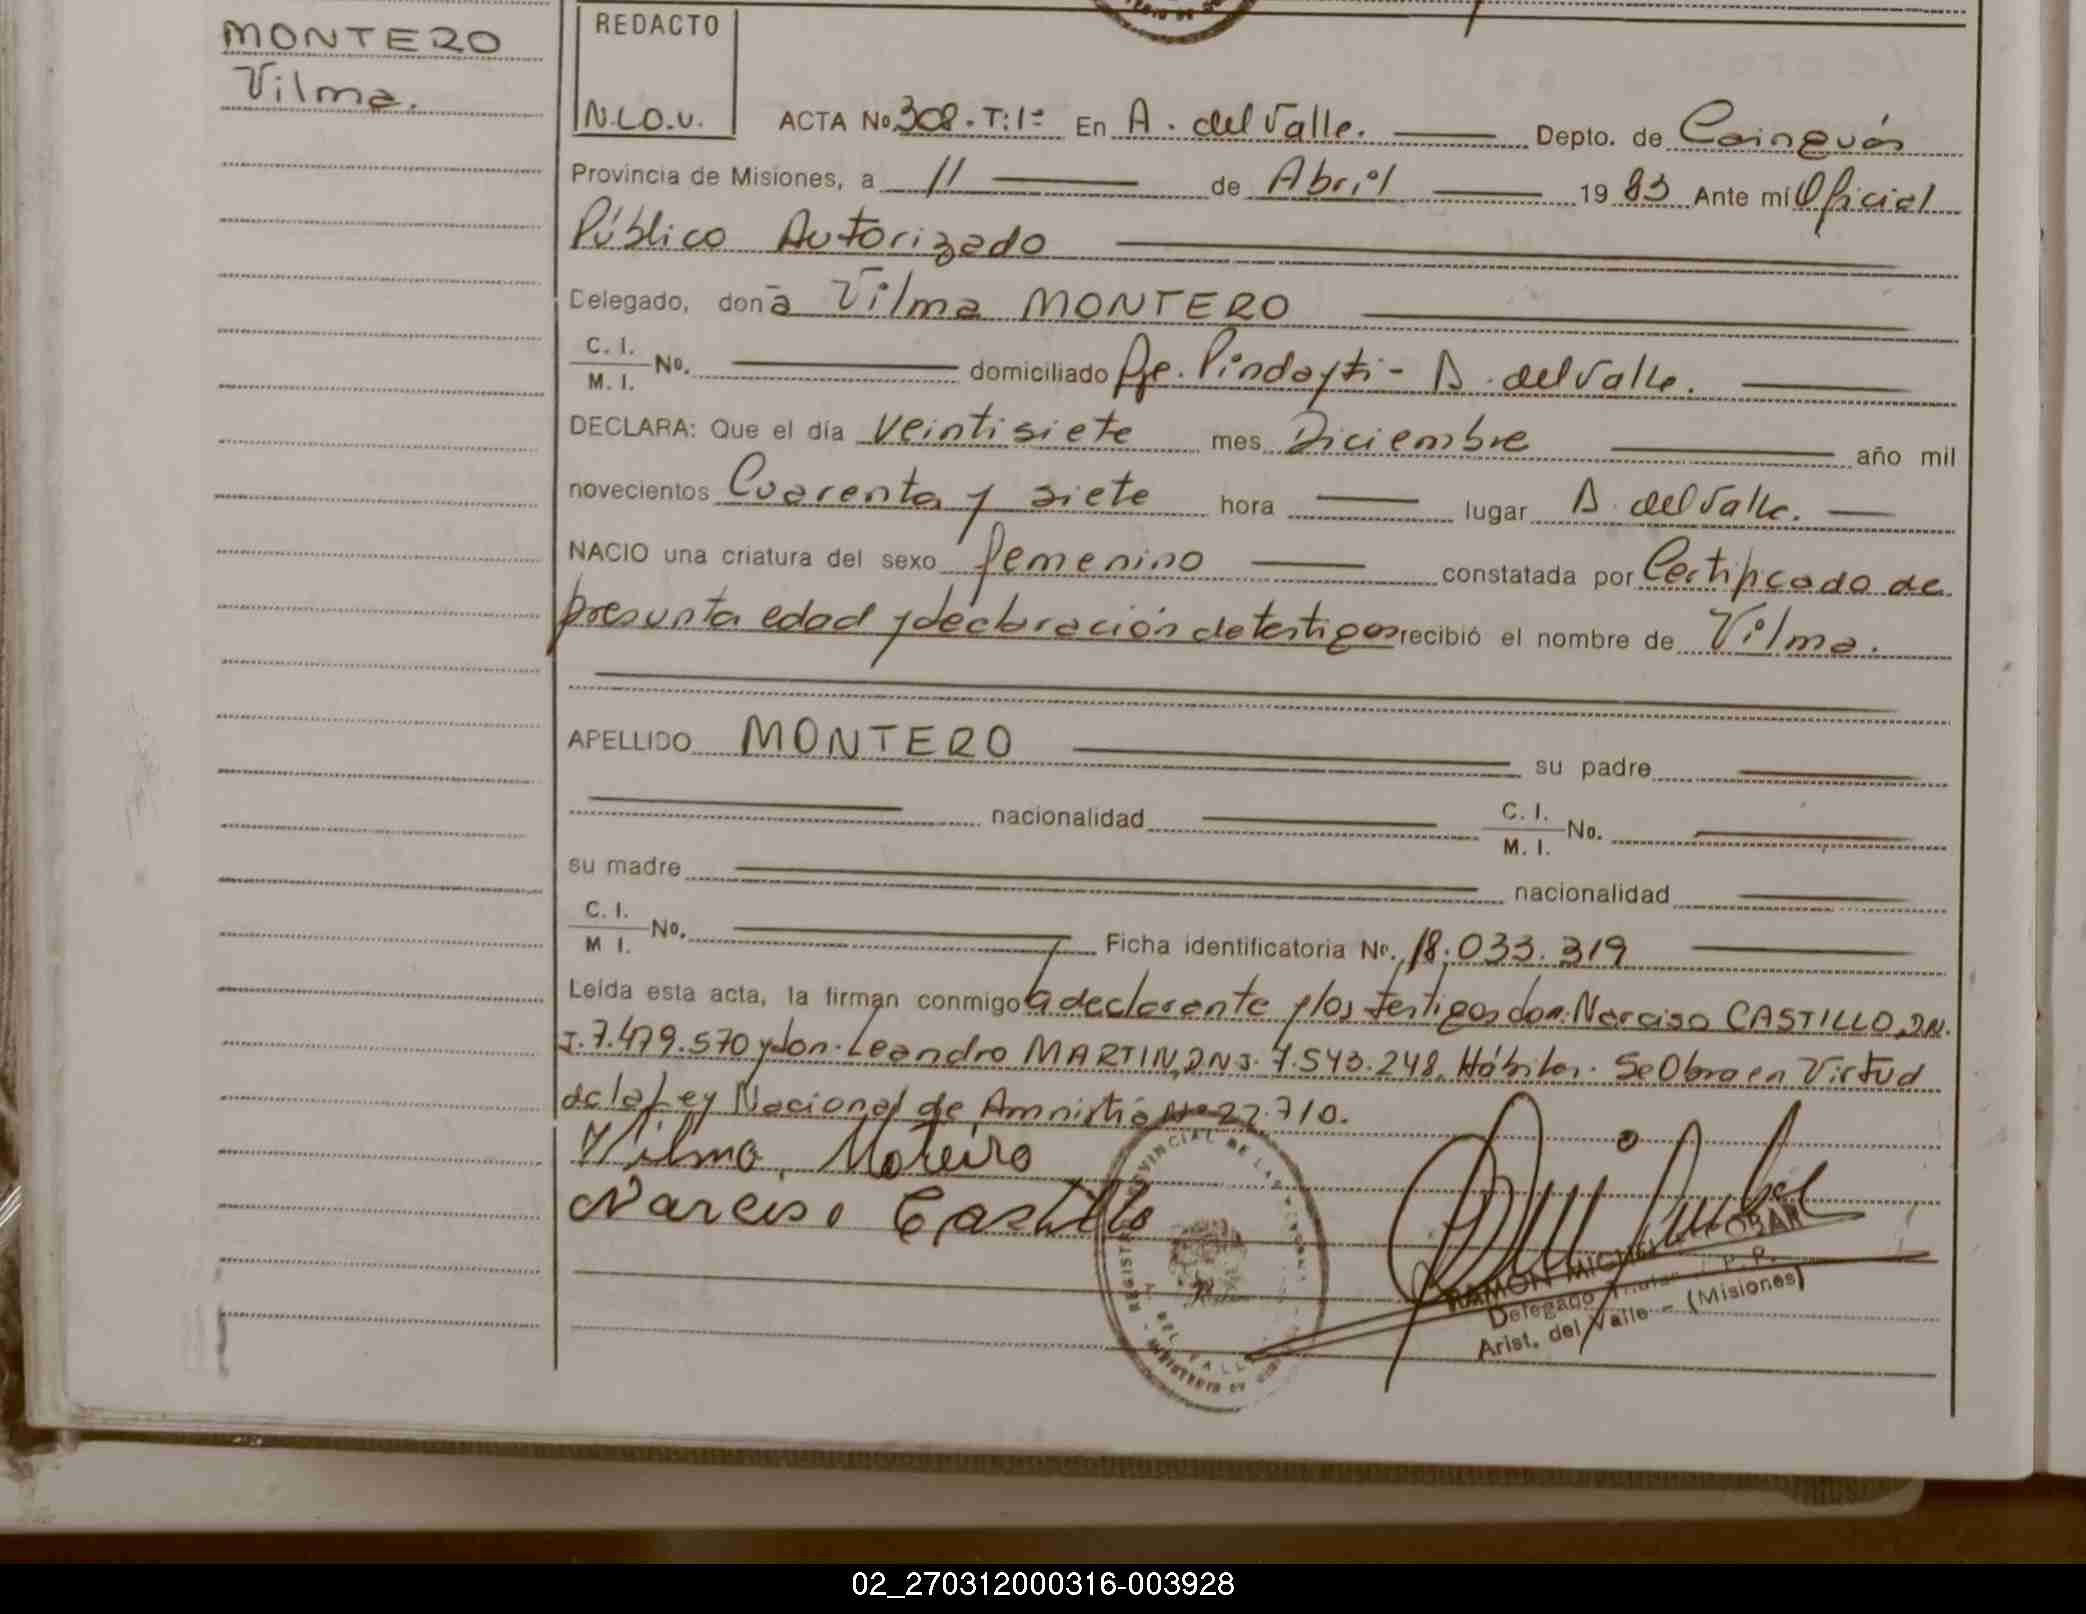 MONTERO
Vilma.
REDACTO
N.L.O.V.
ACTA No. 308. T: 1º En A. del Valle. Depto. de Cainguás
Provincia de Misiones, a 11 de Abril 1983 Ante mí Oficial
Público Autorizado
Delegado, doña Vilma MONTERO
C. I.
M. I. No. domiciliado Pje. Pindayti - A. del Valle.
DECLARA: Que el día veintisiete mes Diciembre año mil
novecientos Cuarenta y siete hora lugar A. del Valle.
NACIO una criatura del sexo femenino constatada por Certificado de
presunta edad y declaración de testigos recibió el nombre de Vilma.
APELLIDO MONTERO su padre
nacionalidad C. I.
M. I. No.
su madre nacionalidad
C. I.
M I. No. Ficha identificatoria No. 18.033.319
Leída esta acta, la firman conmigo la declarante y los testigos don: Narciso CASTILLO, D.N.
I. 7.479.570 y don. Leandro MARTIN, DNI. 7.543.248. Hábiles. Se Obra en Virtud
de la Ley Nacional de Amnistía Nº 22.710.
Vilma, Moteiro
Narciso Castillo
REGISTRO PROVINCIAL DE LAS
DEL VALLE
RAMON MICHEL
Delegado Titular
Arist. del Valle - (Misiones)
02_270312000316-003928